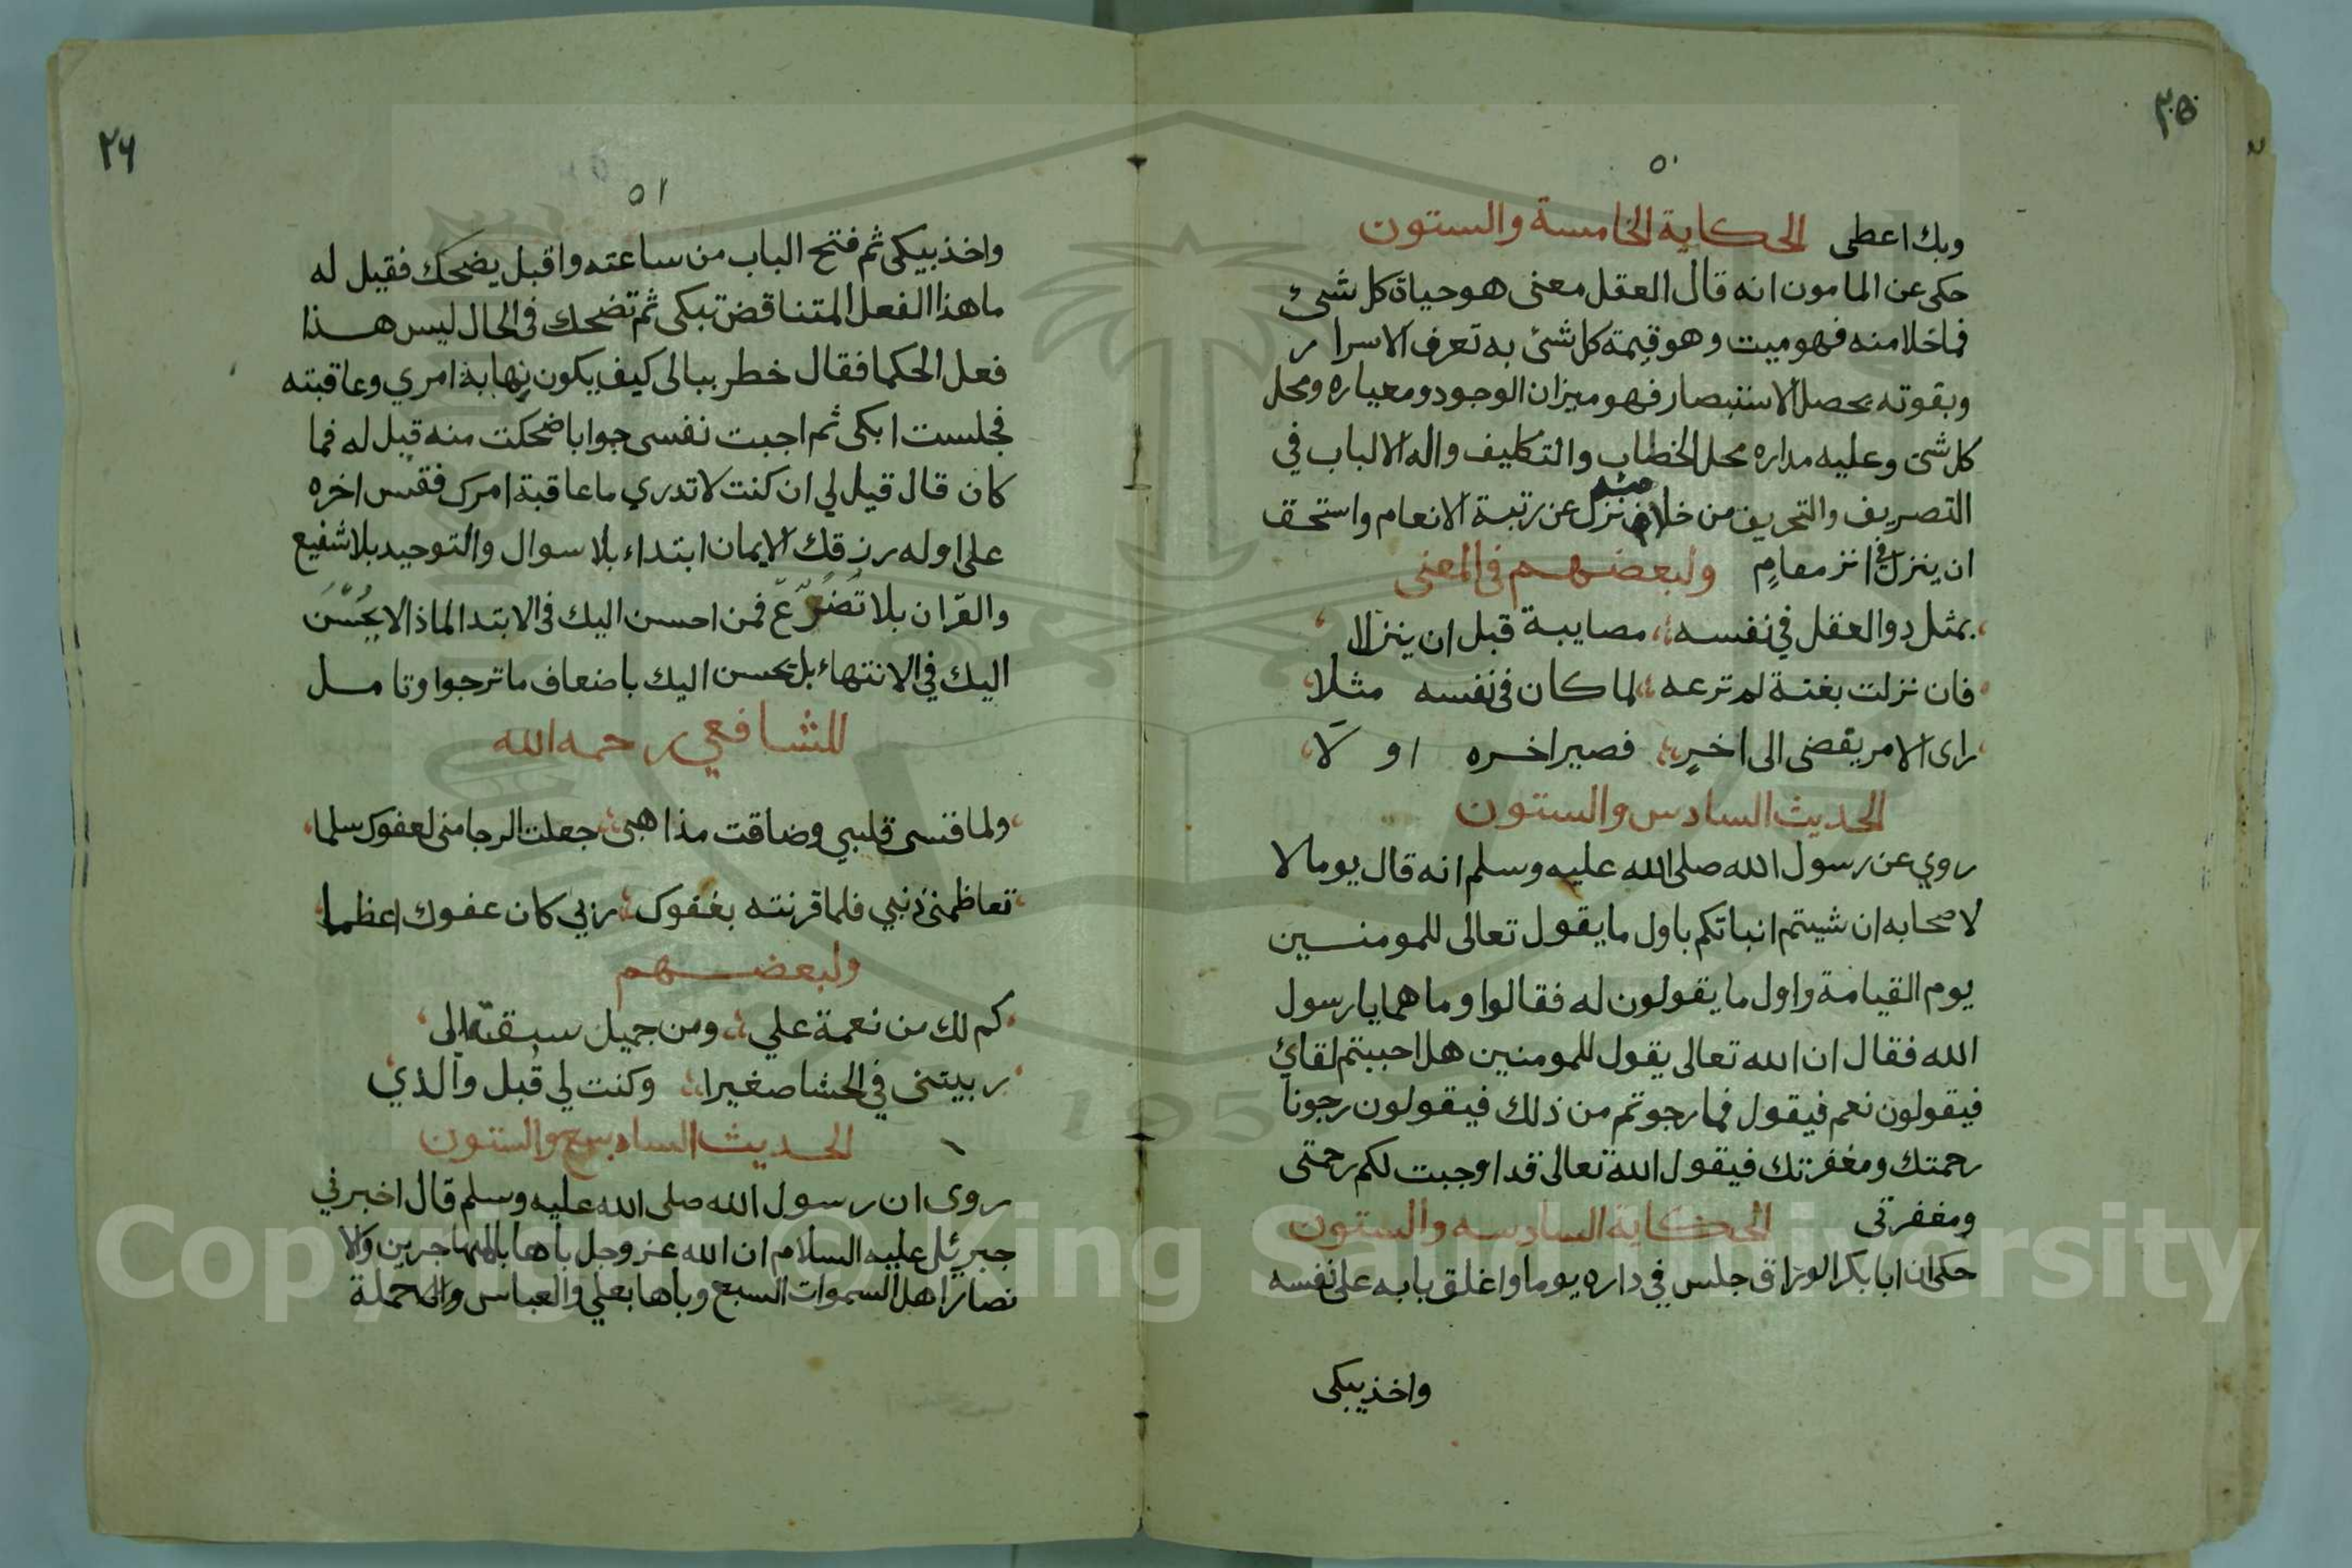 ٢٥
٥٠
وبك اعطى الحكاية الخامسة والستون
حكى عن المامون انه قال العقل معنى هو حياة كل شئ
فما خلا منه فهو ميت وهو قيمة كل شئ به تعرف الاسرار
وبقوته يحصل الاستبصار فهو ميزان الوجود ومعياره ومحل
كل شئ وعليه مداره محل الخطاب والتكليف واله الالباب في
التصريف والتحريف من خلا منه نزل عن رتبة الانعام واستحق
ان ينزل في انز مقام ولبعضهم في المعنى
يمثل ذو العقل في نفسه مصايبة قبل ان ينزلا
فان نزلت بغتة لم ترعه لما كان في نفسه مثلا
راى الامر يقضى الى اخرٍ فصير اخره او لَا
الحديث السادس والستون
روي عن رسول الله صلى الله عليه وسلم انه قال يوما لا
لاصحابه ان شيتم انباتكم باول ما يقول تعالى للمومنسين
يوم القيامة واول ما يقولون له فقالوا وما هما يا رسول
الله فقال ان الله تعالى يقول للمومنين هل احببتم لقائ
فيقولون نعم فيقول فما رجوتم من ذلك فيقولون رجونا
رحمتك ومغفرتك فيقول الله تعالى قد اوجبت لكم رحمتى
ومغفرتى الحكاية السادسه والستون
حكى ان ابا بكر الوراق جلس في داره يوما واغلق بابه على نفسه
واخذ يبكى
٢٦
٥١
واخذ يبكى ثم فتح الباب من ساعته واقبل يضحك فقيل له
ما هذا الفعل المتناقض تبكى ثم تضحك فى الحال ليس هذا
فعل الحكما فقال خطر ببالى كيف يكون نهاية امري وعاقبته
فجلست ابكى ثم اجبت نفسى جوابا ضحكت منه قيل له فما
كان قال قيل لي ان كنت لا تدري ما عاقبة امرك فقس اخره
على اوله رزقك الايمان ابتداء بلا سوال والتوحيد بلا شفيع
والقران بلا تضرّع فمن احسن اليك فى الابتدا لماذا لا يحسن
اليك في الانتهاء بل يحسن اليك باضعاف ما ترجوا وتامل
للشافعي رحمه الله
ولما قسى قلبي وضاقت مذاهبى جعلت الرجا منى لعفوك سلما
تعاظمنى ذنبي فلما قرنته بعفوك ربي كان عفوك اعظما
ولبعضهم
كم لك من نعمة علي ومن جميل سبقته الى
ربيتنى في الحشا صغيرا وكنت لي قبل والذي
الحديث السابع والستون
روى ان رسول الله صلى الله عليه وسلم قال اخبرني
جبرئل عليه السلام ان الله عز وجل باها بالمهاجرين والا
نصار اهل السموات السبع وباها بعلي والعباس والحملة
Copyright © King Saud University
195